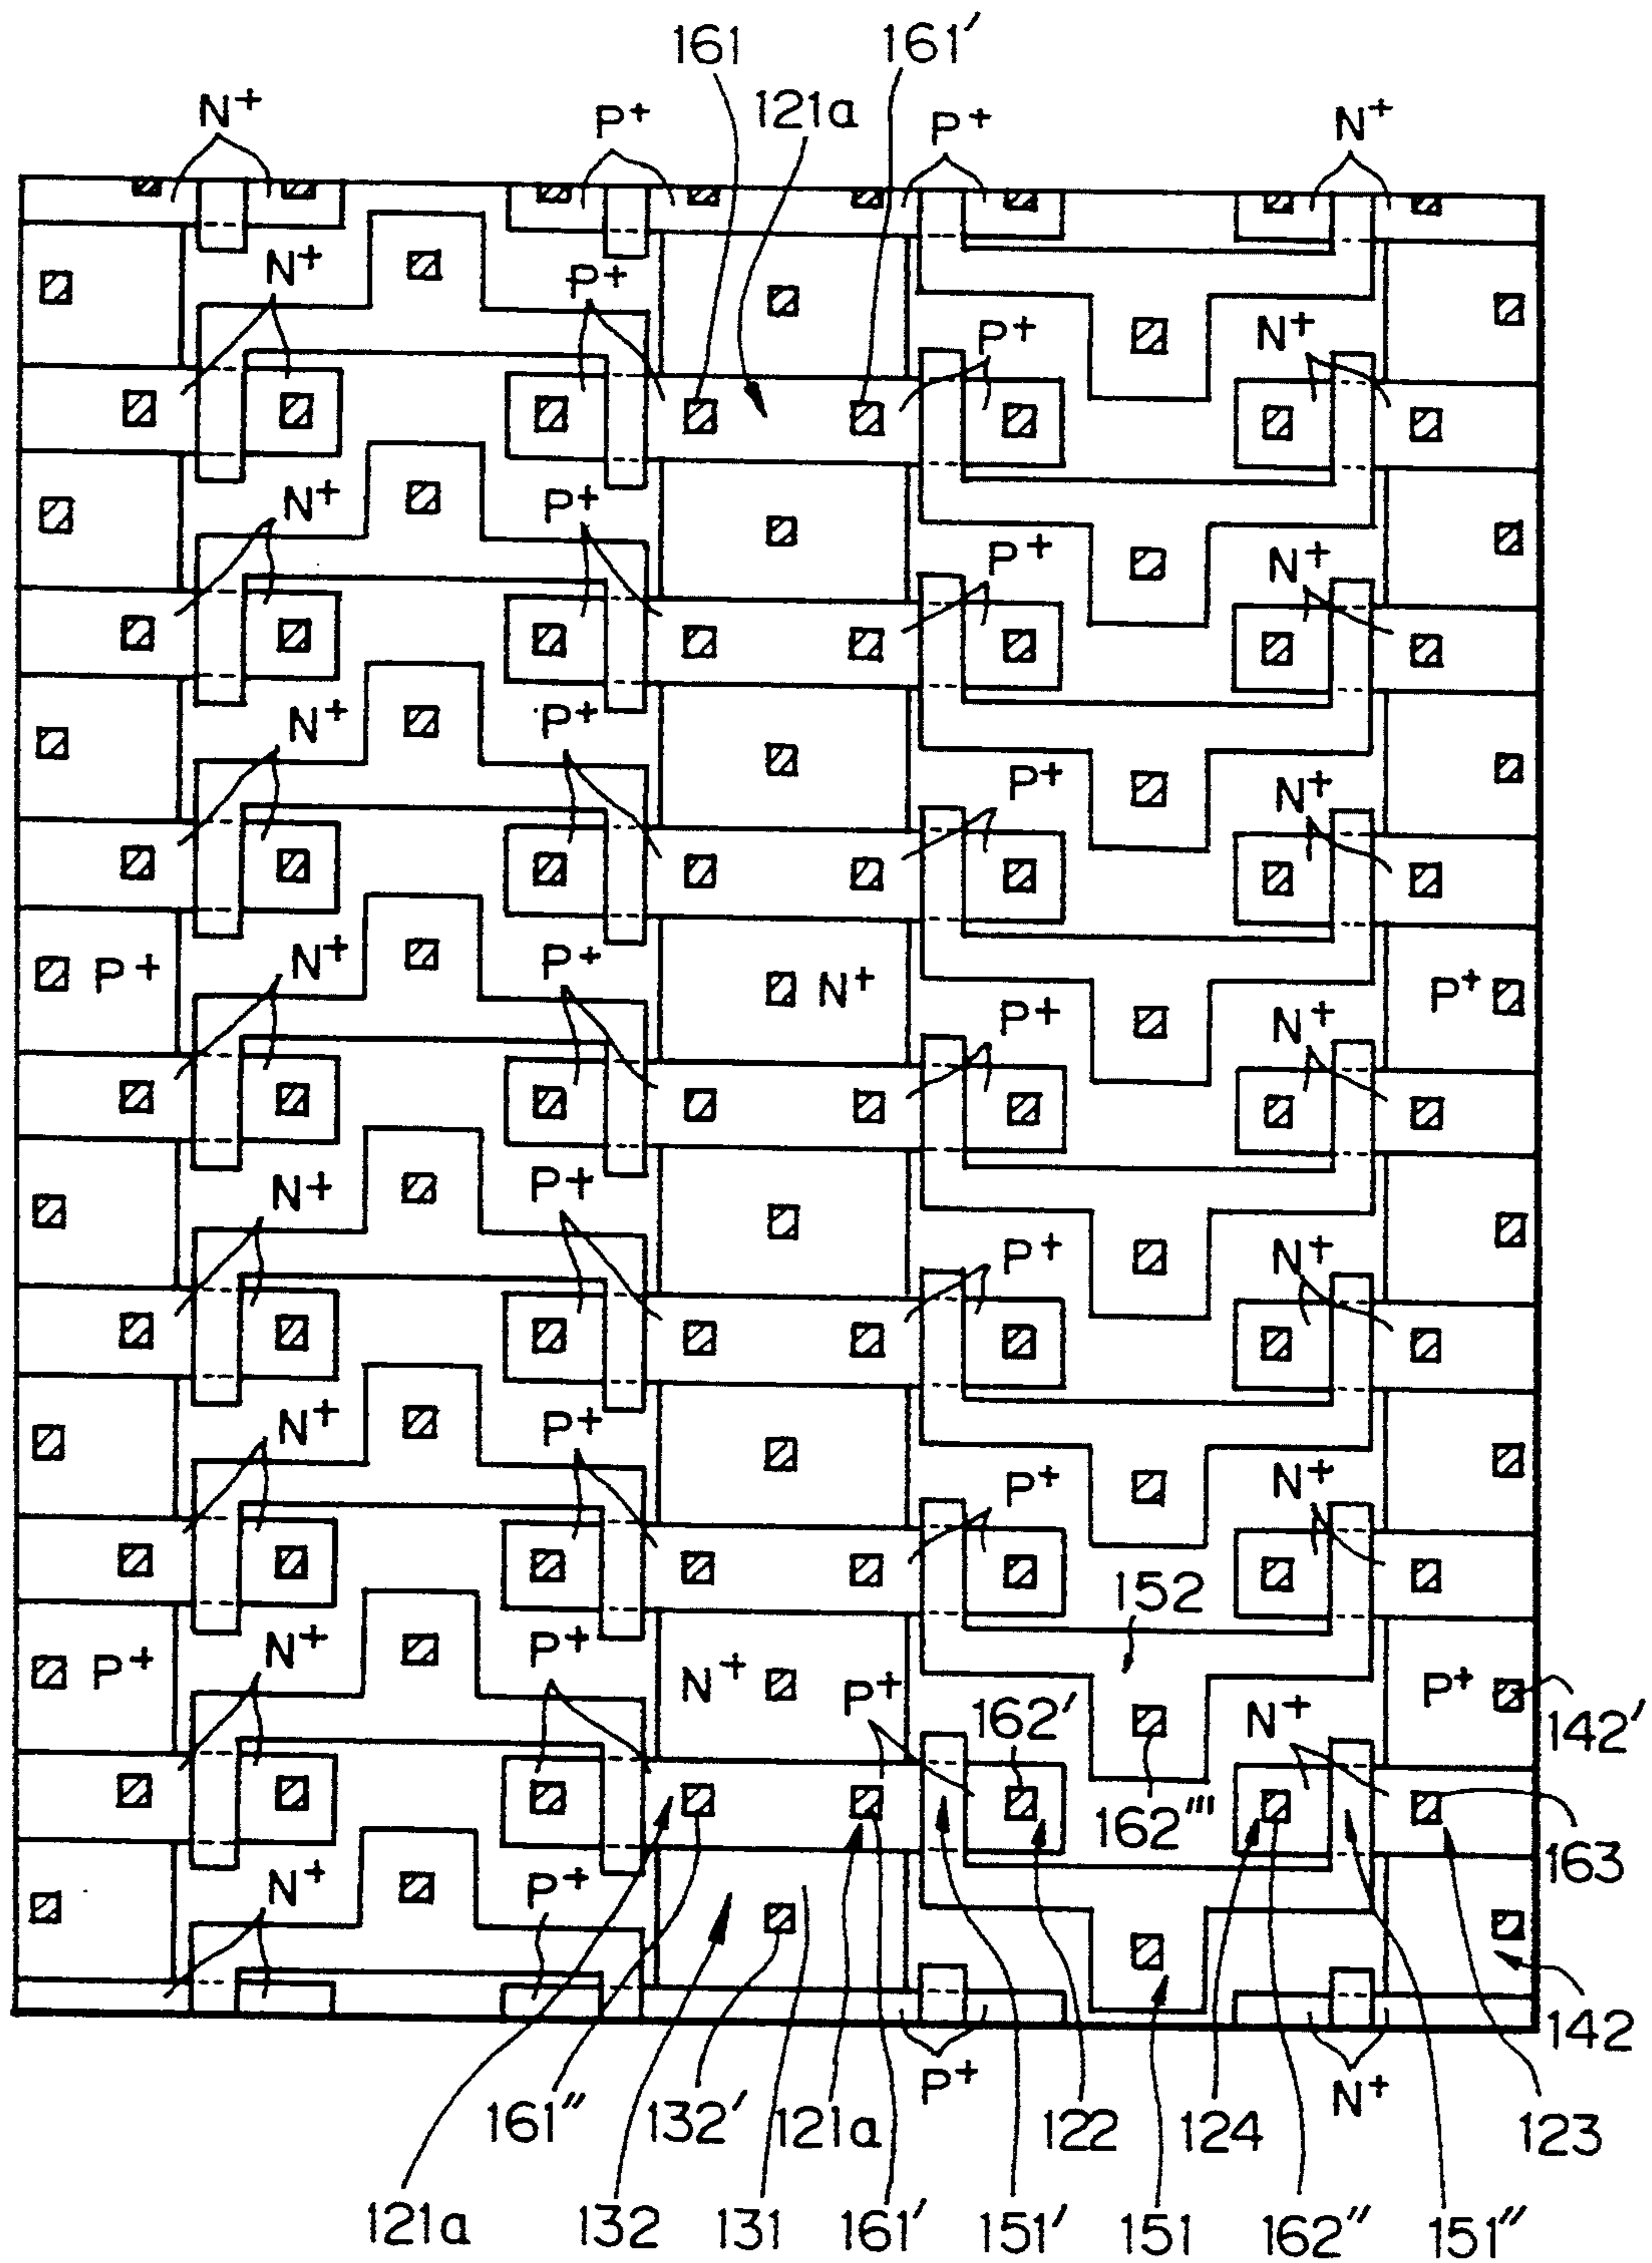 161 161′
121a
N+ P+ P+ N+
N+ P+ P+ N+
N+ P+ P+ N+
N+ P+ P+ N+
P+ N+ P+ N+ P+ N+ P+
N+ P+ P+ N+
N+ P+ P+ N+
152
P+ N+ P+ N+ P+ 162′ N+ P+
142′
162‴
163
N+ P+
142
P+ N+
161″ 132′ 121a 122 124 123
121a 132 131 161′ 151′ 151 162″ 151″